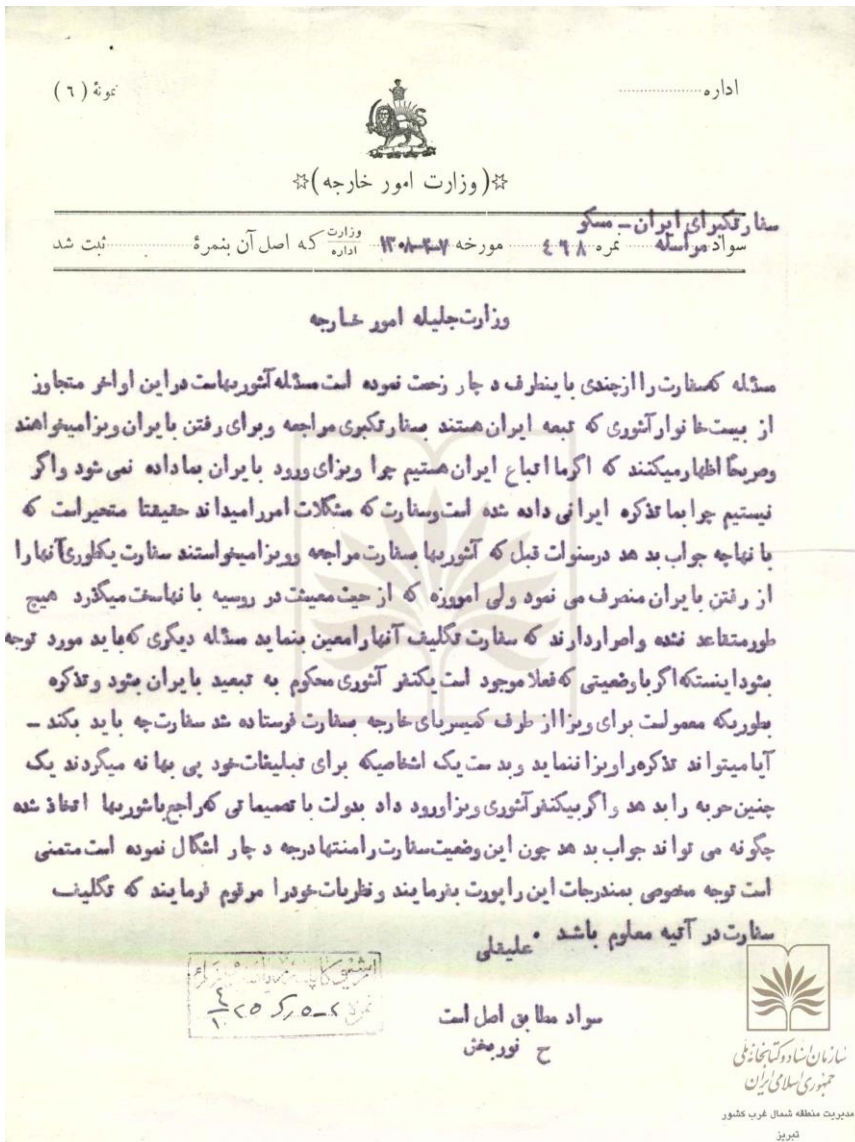 اداره
نمونهٔ (٦)
(وزارت امور خارجه)
سفارتکبرای ایران ـ مسکو
سواد مراسله نمره ٤٦٨ مورخه ۷-۲-۱۳۰۸ وزارت اداره که اصل آن بنمرهٔ ثبت شد
وزارت جلیله امور خارجه
مسئله که سفارت را از چندی باینطرف دچار زحمت نموده است مسئله آشوریهاست در این اواخر متجاوز
از بیست خانوار آشوری که تبعه ایران هستند بسفارتکبری مراجعه و برای رفتن بایران ویزا میخواهند
و صریحاً اظهار میکنند که اگر ما اتباع ایران هستیم چرا ویزای ورود بایران بما داده نمی شود و اگر
نیستیم چرا بما تذکره ایرانی داده شده است و سفارت که مشکلات امور را میداند حقیقتا متحیر است که
بانها چه جواب بدهد در سنوات قبل که آشوریها بسفارت مراجعه و ویزا میخواستند سفارت یکطوری آنها را
از رفتن بایران منصرف می نمود ولی امروزه که از حیث معیشت در روسیه بانها سخت میگذرد هیچ
طور متقاعد نشده و اصرار دارند که سفارت تکلیف آنها را معین بنماید مسئله دیگری که باید مورد توجه
بشود اینستکه اگر با وضعیتی که فعلا موجود است یکنفر آشوری محکوم به تبعید بایران بشود و تذکره
بطوریکه معمولست برای ویزا از طرف کمیسریای خارجه بسفارت فرستاده شد سفارت چه باید بکند ـ
آیا میتواند تذکره را ویزا ننماید و بدست یک اشخاصیکه برای تبلیغات خود پی بهانه میگردند یک
چنین حربه را بدهد و اگر بیکنفر آشوری ویزا ورود داد بدولت با تصمیماتی که راجع باشوریها اتخاذ شده
چگونه می تواند جواب بدهد چون این وضعیت سفارت را منتها درجه دچار اشکال نموده است متمنی
است توجه مخصوصی بمندرجات این راپورت بفرمایند و نظریات خود را مرقوم فرمایند که تکلیف
سفارت در آتیه معلوم باشد . علیقلی
سواد مطابق اصل است
ح نوربخش
سازمان اسناد و کتابخانه ملی
جمهوری اسلامی ایران
مدیریت منطقه شمال غرب کشور
تبریز